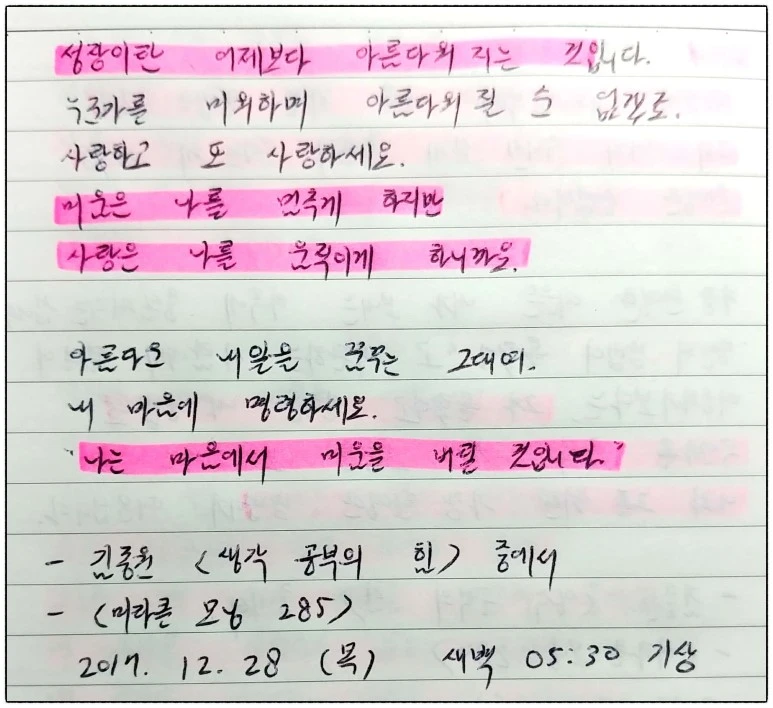 성장이란 어제보다 아름다워 지는 것입니다.
누군가를 미워하며 아름다워 질 수 없겠죠.
사랑하고 또 사랑하세요.
미움은 나를 멈추게 하지만
사랑은 나를 움직이게 하니까요.
아름다운 내일을 꿈꾸는 그대여.
내 마음에 명령하세요.
"나는 마음에서 미움을 버릴 것입니다."
- 김종원 <생각 공부의 힘> 중에서
- <미라클 모닝 285>
2017. 12. 28 (목) 새벽 05:30 기상